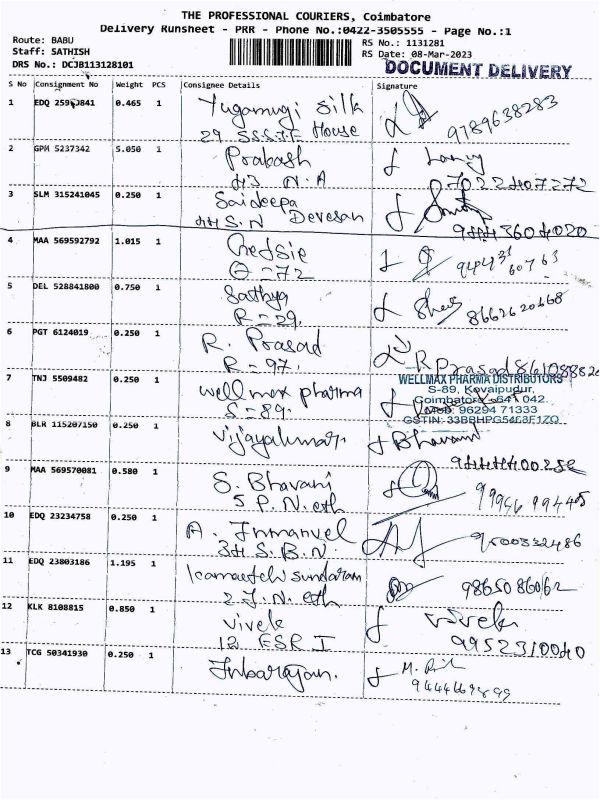 THE PROFESSIONAL COURIERS, Coimbatore
Delivery Runsheet - PRR - Phone No.:0422-3505555 - Page No.:1
Route: BABU
RS No.: 1131281
Staff: SATHISH
RS Date: 08-Mar-2023
DRS No.: DCJB113128101
DOCUMENT DELIVERY
S No Consignment No Weight PCS Consignee Details Signature
1 EDQ 0.465 1 Yugamugi Silk
29 House 9789638283
2 GPM 5237342 5.050 1 Prakash
43 N.A 7022407272
3 SLM 315241045 0.250 1 Saideepa
44 S.N Devesan 94443604020
4 MAA 569592792 1.015 1
= 72
5 DEL 528841800 0.750 1 Sathya
R = 39. 8662620668
6 PGT 6124019 0.250 1 R. Prasad
R = 97. R Prasad
7 TNJ 5509482 0.250 1 wellmax pharma
S = 89.
WELLMAX PHARMA DISTRIBUTORS
S-89, Kovaipudur,
Coimbatore - 641 042.
Mob: 96294 71333
GSTIN:
8 BLR 115207150 0.250 1 Vijayakumar
9 MAA 569570081 0.580 1 S. Bhavani
5 P.N.
10 EDQ 23234758 0.250 1 A. Immanvel
34 S.B.N. 9500332486
11 EDQ 23803186 1.195 1 sundaram
2.J.N. 9865086062
12 KLK 8108815 0.850 1 vivek vivek
12 ESR I 9952310040
13 TCG 50341930 0.250 1 Inbarajan.